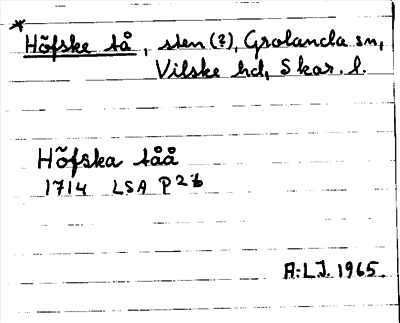 * Höfske tå, sten (?), Grolanda sn,
Vilske hd, Skar. l.
Höfska tåå
1714 LSA P 26
A:LJ. 1965.